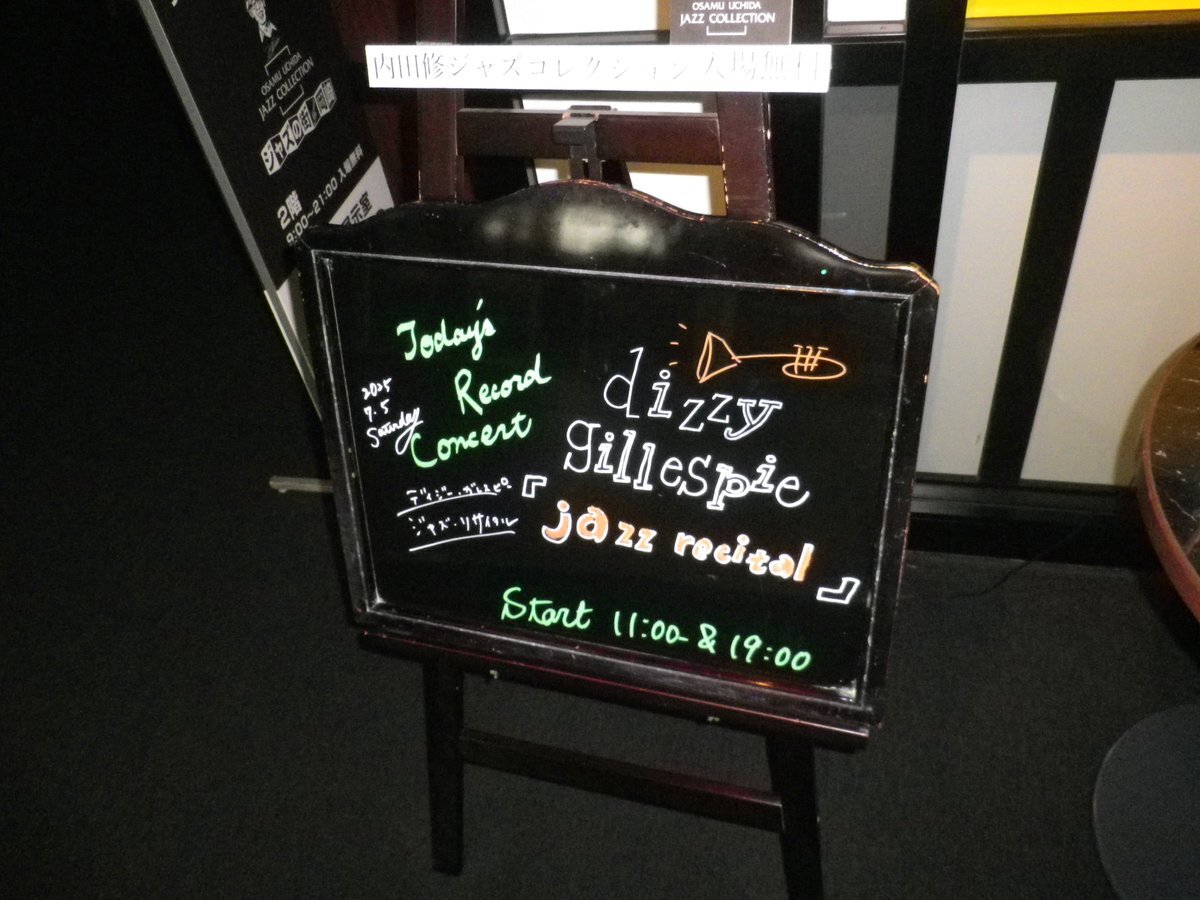 OSAMU UCHIDA
JAZZ COLLECTION
内田修ジャズコレクション 入場無料
OSAMU UCHIDA
JAZZ COLLECTION
ジャズの街 岡崎
2階
9:00~21:00 入場無料
示室
Today's
Record
Concert
2025
7.5
Saturday
dizzy
gillespie
ディジー・ガレスピー
ジャズ・リサイタル
『jazz recital』
Start 11:00- & 19:00